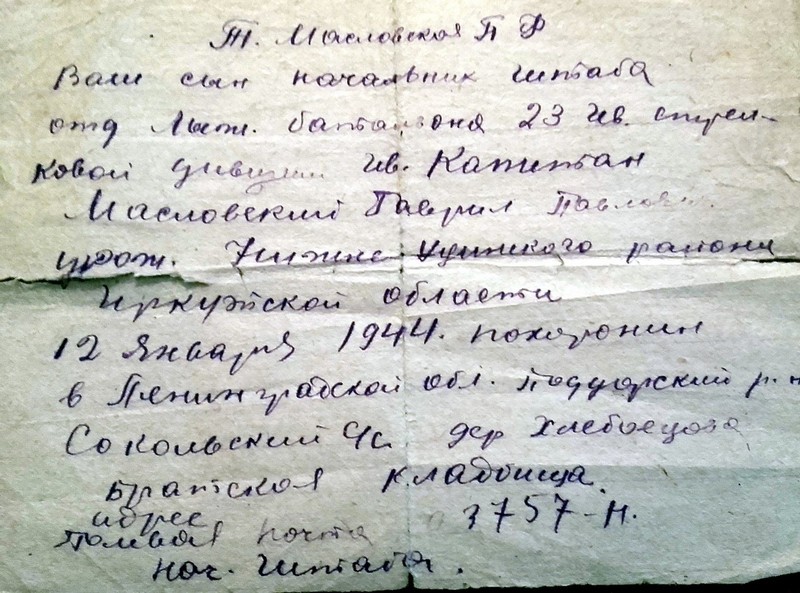 Т. Масловская П Ф
Ваш сын начальник штаба
отд лыж. батальона 23 гв. стрел-
ковой дивизии гв. Капитан
Масловский Гаврил
урож. Нижне Удинского района
Иркутской области
12 января 1944. похоронин
в Ленинградской обл. р.н
Сокольский с/с дер
Братская кладбища
адрес
полевая почта 3757-Н.
нач. штаба.